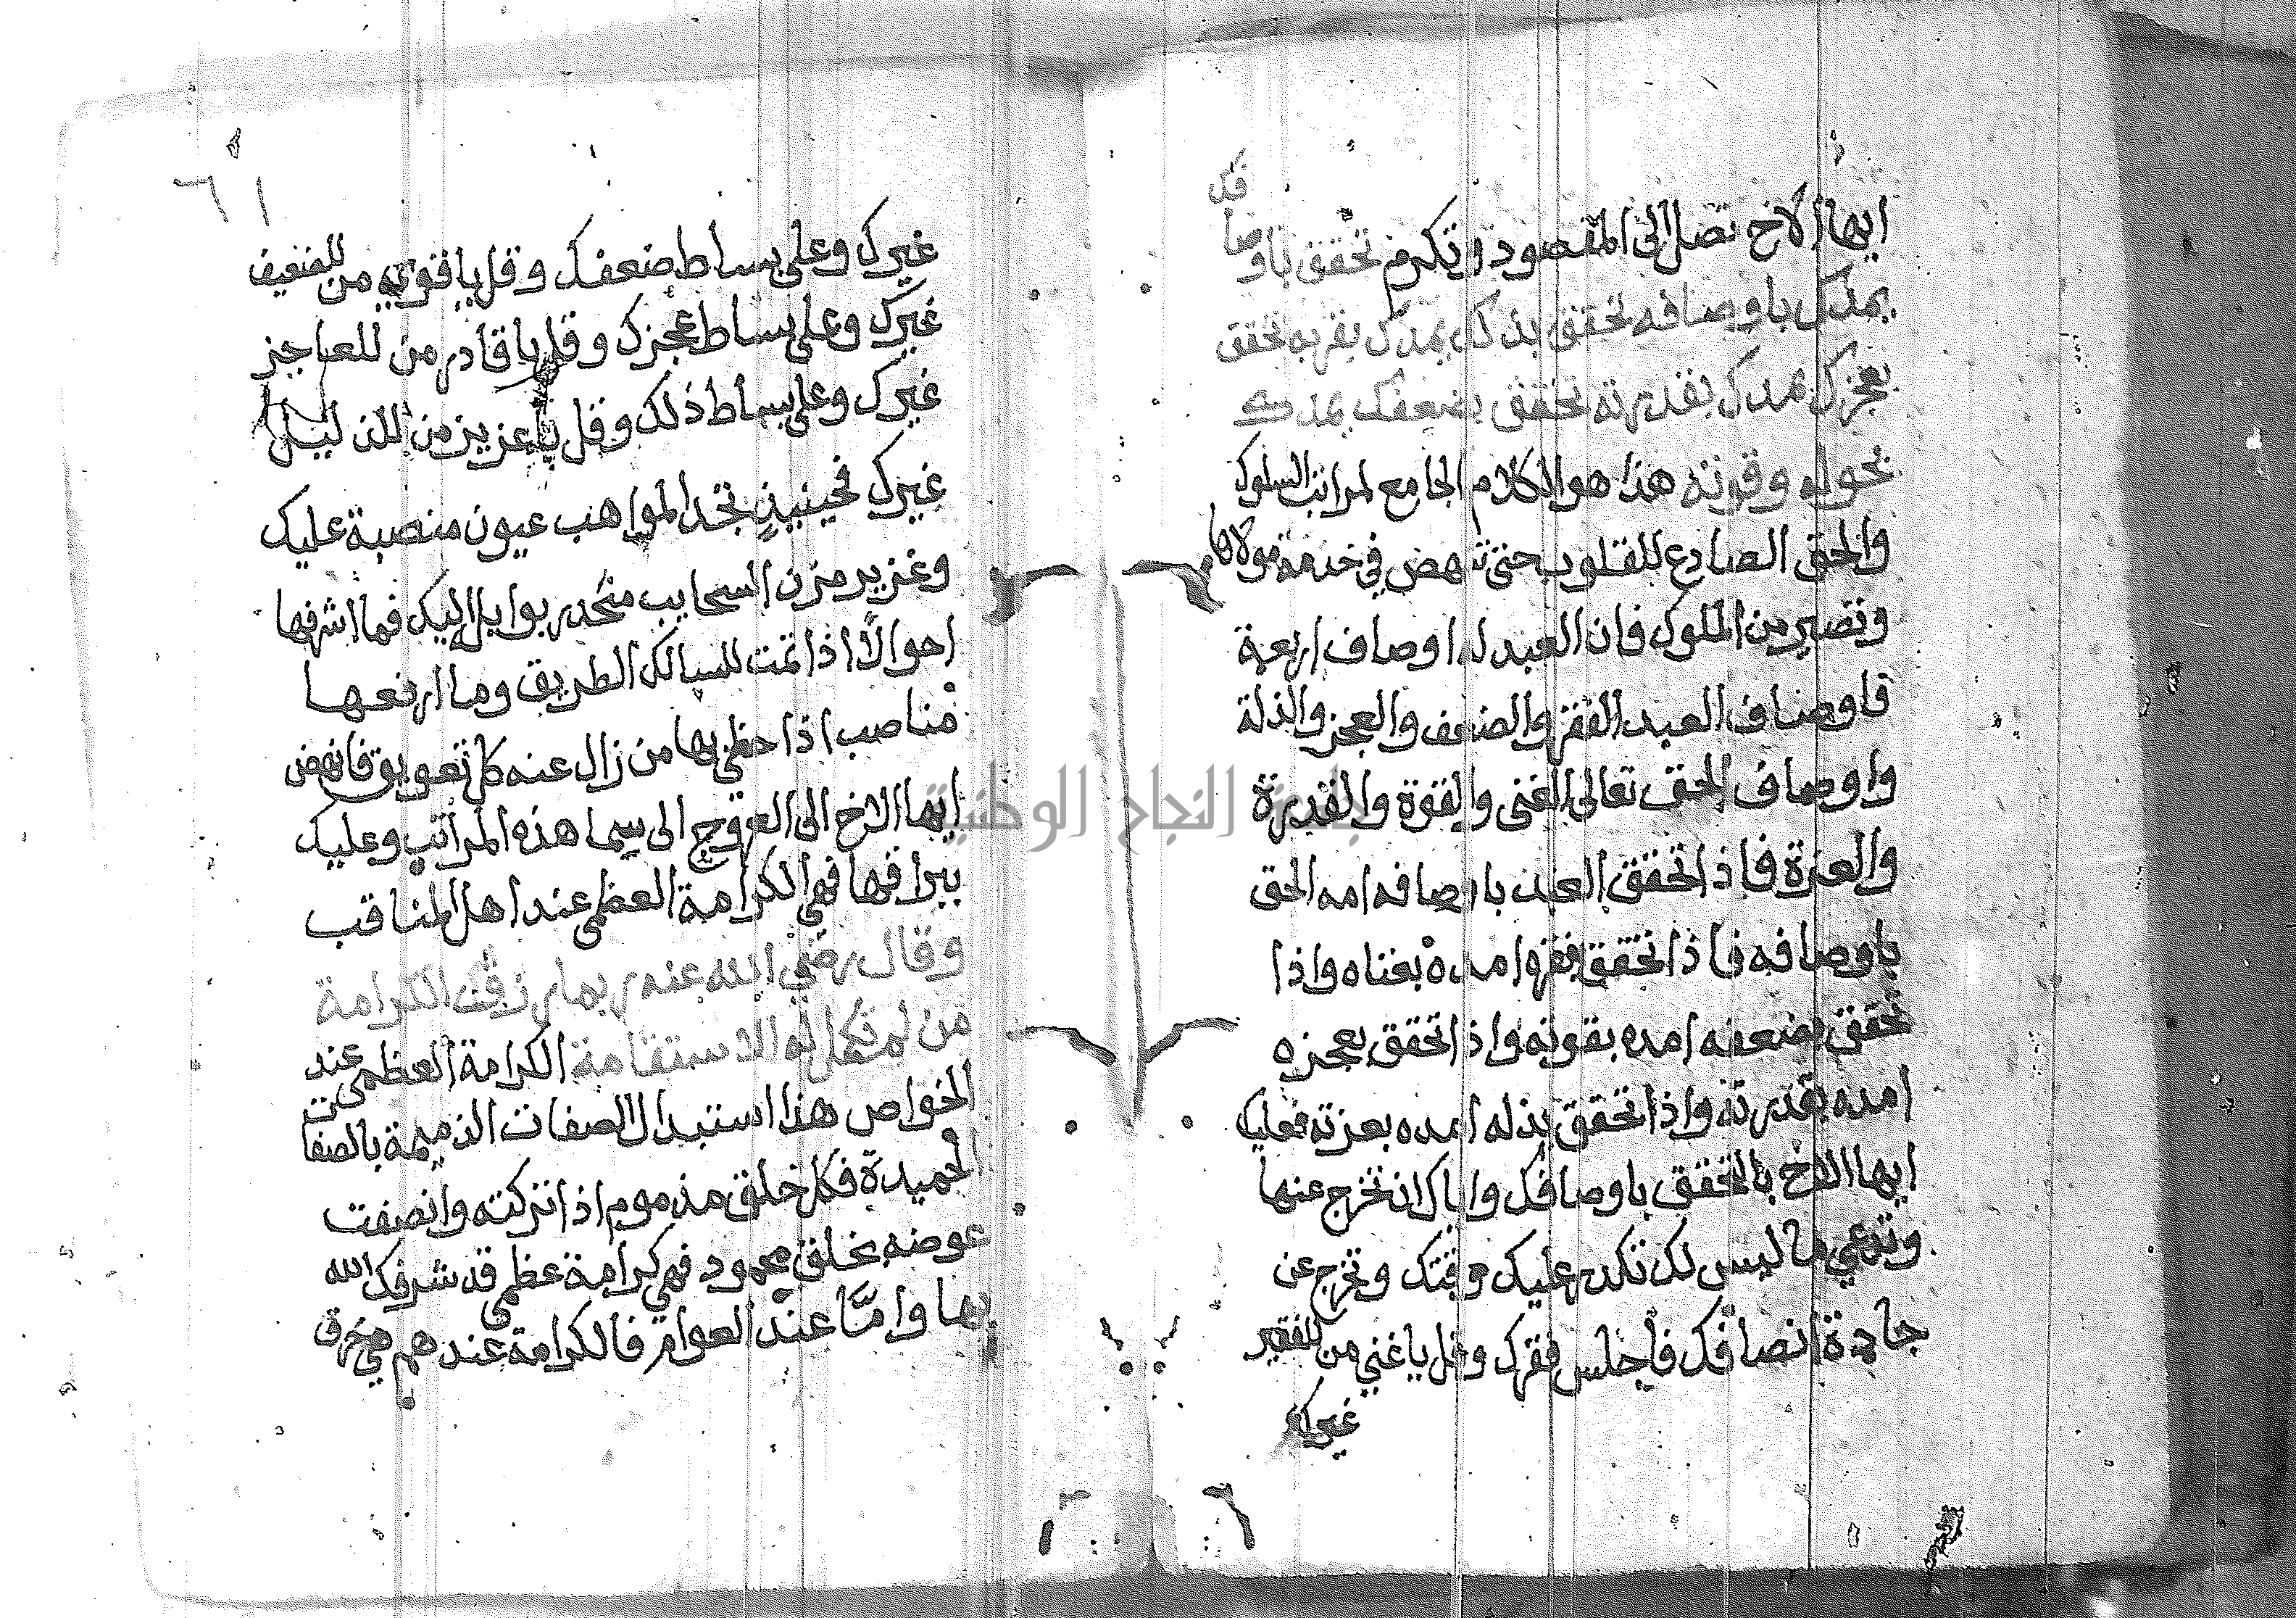 ايها الاخ تصل الى المقصود وتكرم تحقق باوصافك
يمدك باوصافه تحقق بذلك يمدك بعزه تحقق
بعجزك يمدك بقدرته تحقق بضعفك يمدك
بحوله وقوته هذا هو الكلام الجامع لمراتب السلوك
والحق الصادع للقلوب حتى تنهض في خدمة مولاها
وتصير من الملوك فان العبد له اوصاف اربعة
فاوصاف العبد الفقر والضعف والعجز والذلة
واوصاف الحق تعالى الغنى والقوة والقدرة
والعزة فاذا تحقق العبد باوصافه امده الحق
باوصافه فاذا تحقق بفقره امده بغناه واذا
تحقق بضعفه امده بقوته واذا تحقق بعجزه
امده بقدرته واذا تحقق بذله امده بعزته فعليك
ايها الاخ بالتحقق باوصافك واياك ان تخرج عنها
وتدعي ما ليس لك تكدر عليك وقتك وتخرج عن
جادة انصافك فاجلس فقرك وقل يا غني من للفقير
غيرك
٦١
غيرك وعلى بساط ضعفك وقل يا قوي من للضعيف
غيرك وعلى بساط عجزك وقل يا قادر من للعاجز
غيرك وعلى بساط ذلك وقل يا عزيز من للذليل
غيرك فحينيذ تجد المواهب عيون منصبة عليك
وغزير مزن السحايب منحدر بوابل اليك فما اشرفها
احوالا اذا تمت للسالك الطريق وما ارفعها
مناصب اذا حظي بها من زال عنه كل تعويق فانهض
ايها الاخ الى العروج الى سما هذه المراتب وعليك
ببراقها فهي الكرامة العظمى عند اهل المناقب
وقال رضي الله عنه ربما رزق الكرامة
من لم تكمل له الاستقامة الكرامة العظمى عند
الخواص هذا استبدال الصفات الذميمة بالصفات
الحميدة فكل خلق مذموم اذا تركته واتصفت
عوضه بخلق محمود فهي كرامة عظمى قد شرفك الله
بها وامّا عند العوام فالكرامة عندهم هي خرق
جامعة النجاح الوطنية